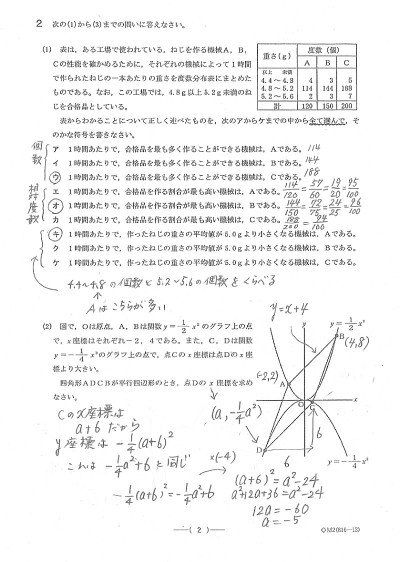 2 次の(1)から(3)までの問いに答えなさい。
(1) 表は、ある工場で使われている、ねじを作る機械A、B、
Cの性能を確かめるために、それぞれの機械によって1時間
で作られたねじの一本あたりの重さを度数分布表にまとめた
ものである。なお、この工場では、4.8g以上5.2g未満のね
じを合格品としている。
重さ(g) 度数(個)
A B C
以上 未満
4.4～4.8 4 3 5
4.8～5.2 114 144 188
5.2～5.6 2 3 7
計 120 150 200
表からわかることについて正しく述べたものを、次のアからケまでの中から全て選んで、そ
のかな符号を書きなさい。
個数
ア 1時間あたりで、合格品を最も多く作ることができる機械は、Aである。 114
イ 1時間あたりで、合格品を最も多く作ることができる機械は、Bである。 144
ウ 1時間あたりで、合格品を最も多く作ることができる機械は、Cである。 188
相対度数
エ 1時間あたりで、合格品を作る割合が最も高い機械は、Aである。 114/120 = 57/60 = 19/20 = 95/100
オ 1時間あたりで、合格品を作る割合が最も高い機械は、Bである。 144/150 = 72/75 = 24/25 = 96/100
カ 1時間あたりで、合格品を作る割合が最も高い機械は、Cである。 188/200 = 94/100
キ 1時間あたりで、作ったねじの重さの平均値が5.0gより小さくなる機械は、Aである。
ク 1時間あたりで、作ったねじの重さの平均値が5.0gより小さくなる機械は、Bである。
ケ 1時間あたりで、作ったねじの重さの平均値が5.0gより小さくなる機械は、Cである。
4.4～4.8の個数と5.2～5.6の個数をくらべる
Aはこちらが多い
(2) 図で、Oは原点、A、Bは関数y=1/2 x²のグラフ上の点
で、x座標はそれぞれ－2、4である。また、C、Dは関数
y=－1/4 x²のグラフ上の点で、点Cのx座標は点Dのx座
標より大きい。
四角形ADCBが平行四辺形のとき、点Dのx座標を求め
なさい。
y=x+4
y=1/2 x²
B
(4,8)
(-2,2)
A
O
C
D
6
6
y=－1/4 x²
Cのx座標は
a+6だから
y座標は -1/4(a+6)²
これは -1/4a²+6と同じ
(a, -1/4a²)
-1/4(a+6)² = -1/4a²+6
×(-4)
(a+6)² = a²-24
a²+12a+36 = a²-24
12a = -60
a = -5
—( 2 )—